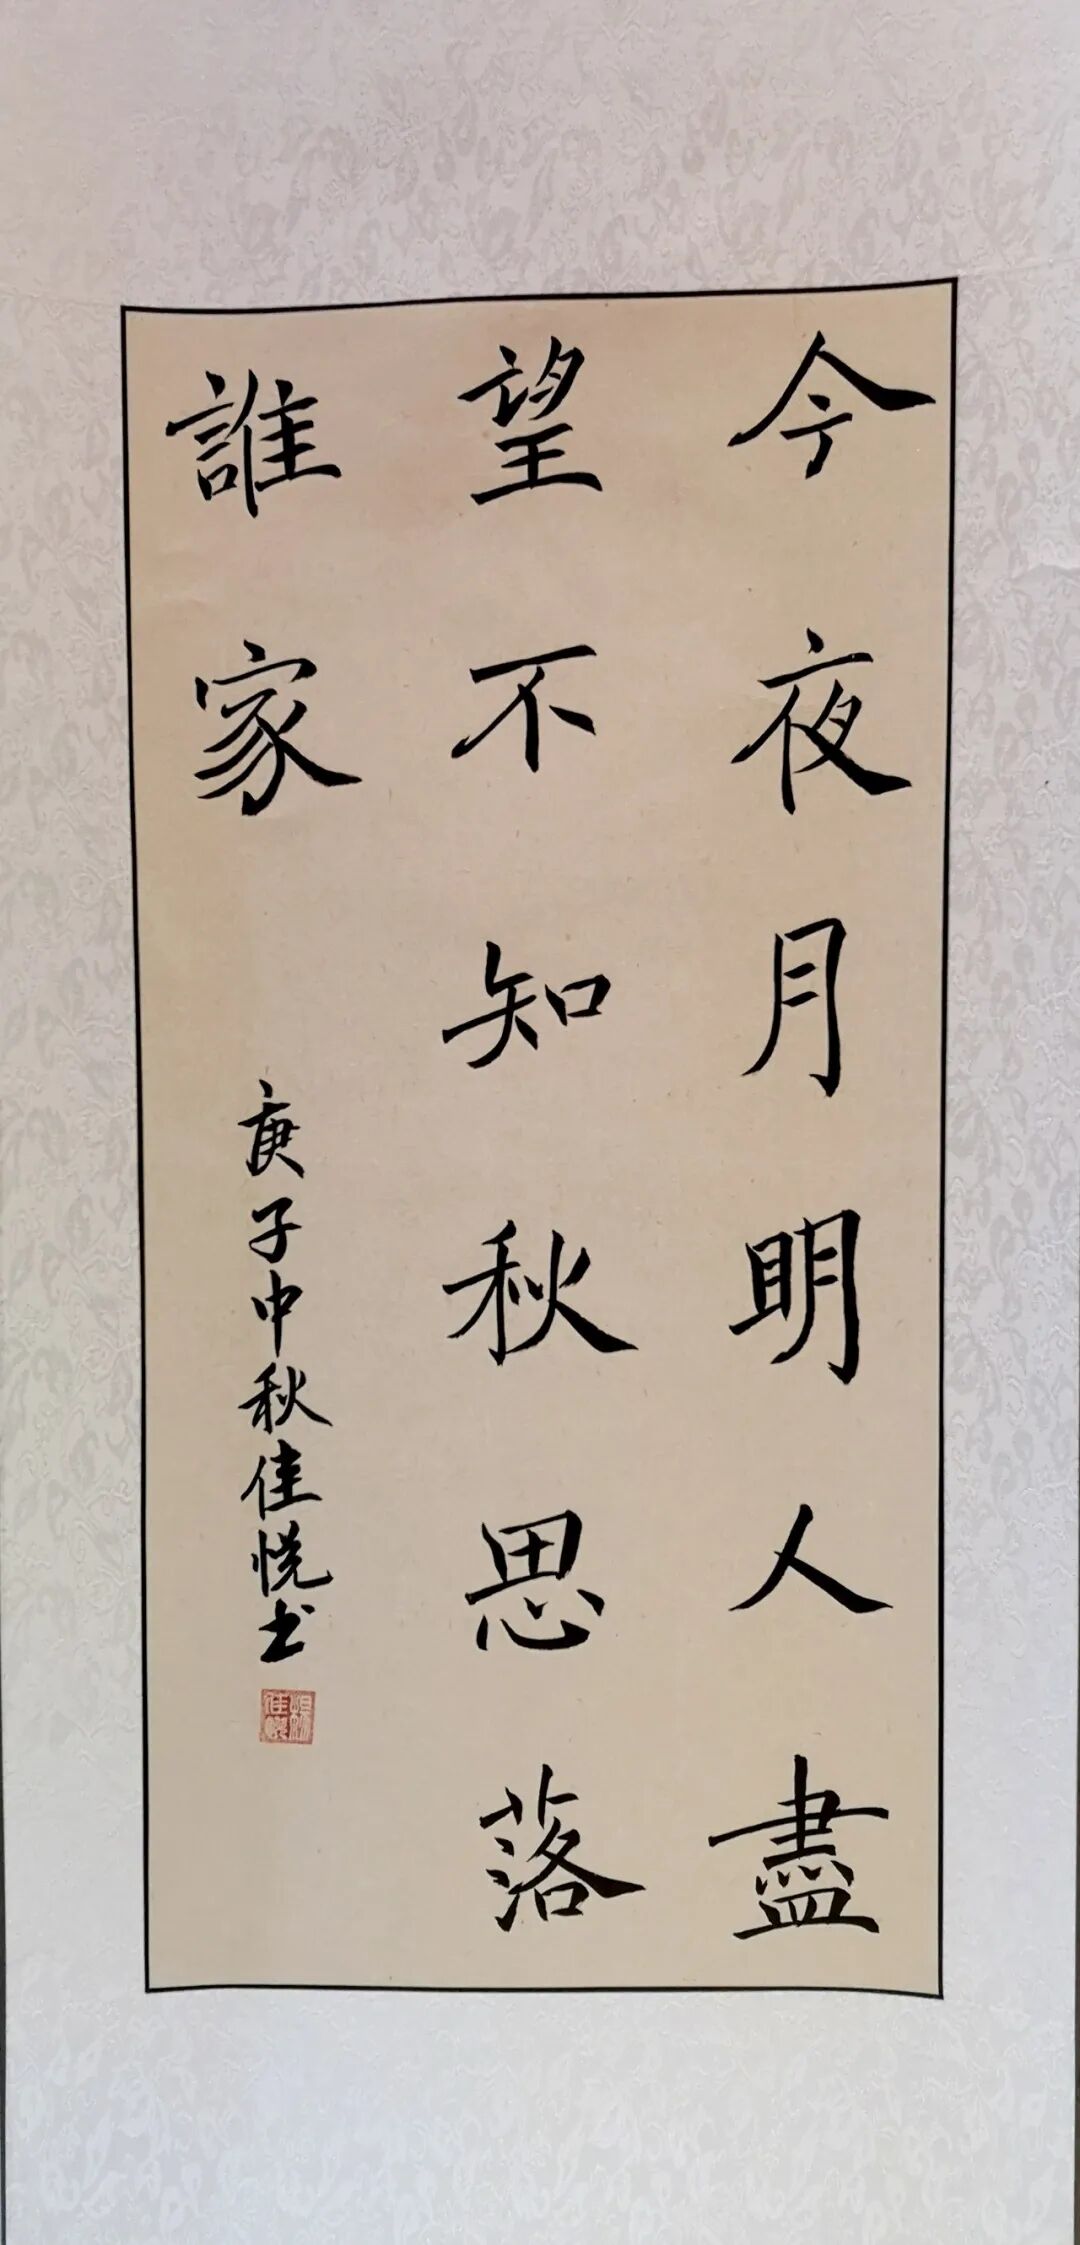 今夜月明人盡
望不知秋思落
誰家
庚子中秋佳悦书